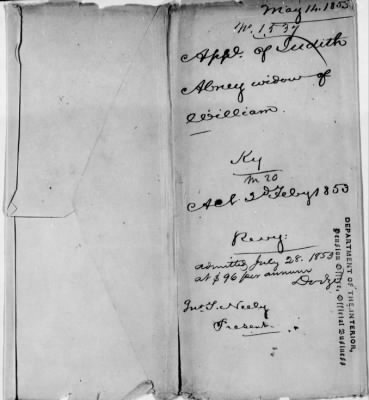 May 14. 1853
No. 1537
Appl. of Judith
Abney widow of
William.
Ky
m 20
Act 3d Feby 1853
Perry:
admitted July 28. 1853
at $96 per annum
Dodge
Jno. S. Neely
Present.
DEPARTMENT OF THE INTERIOR,
Pension Office, Official Business